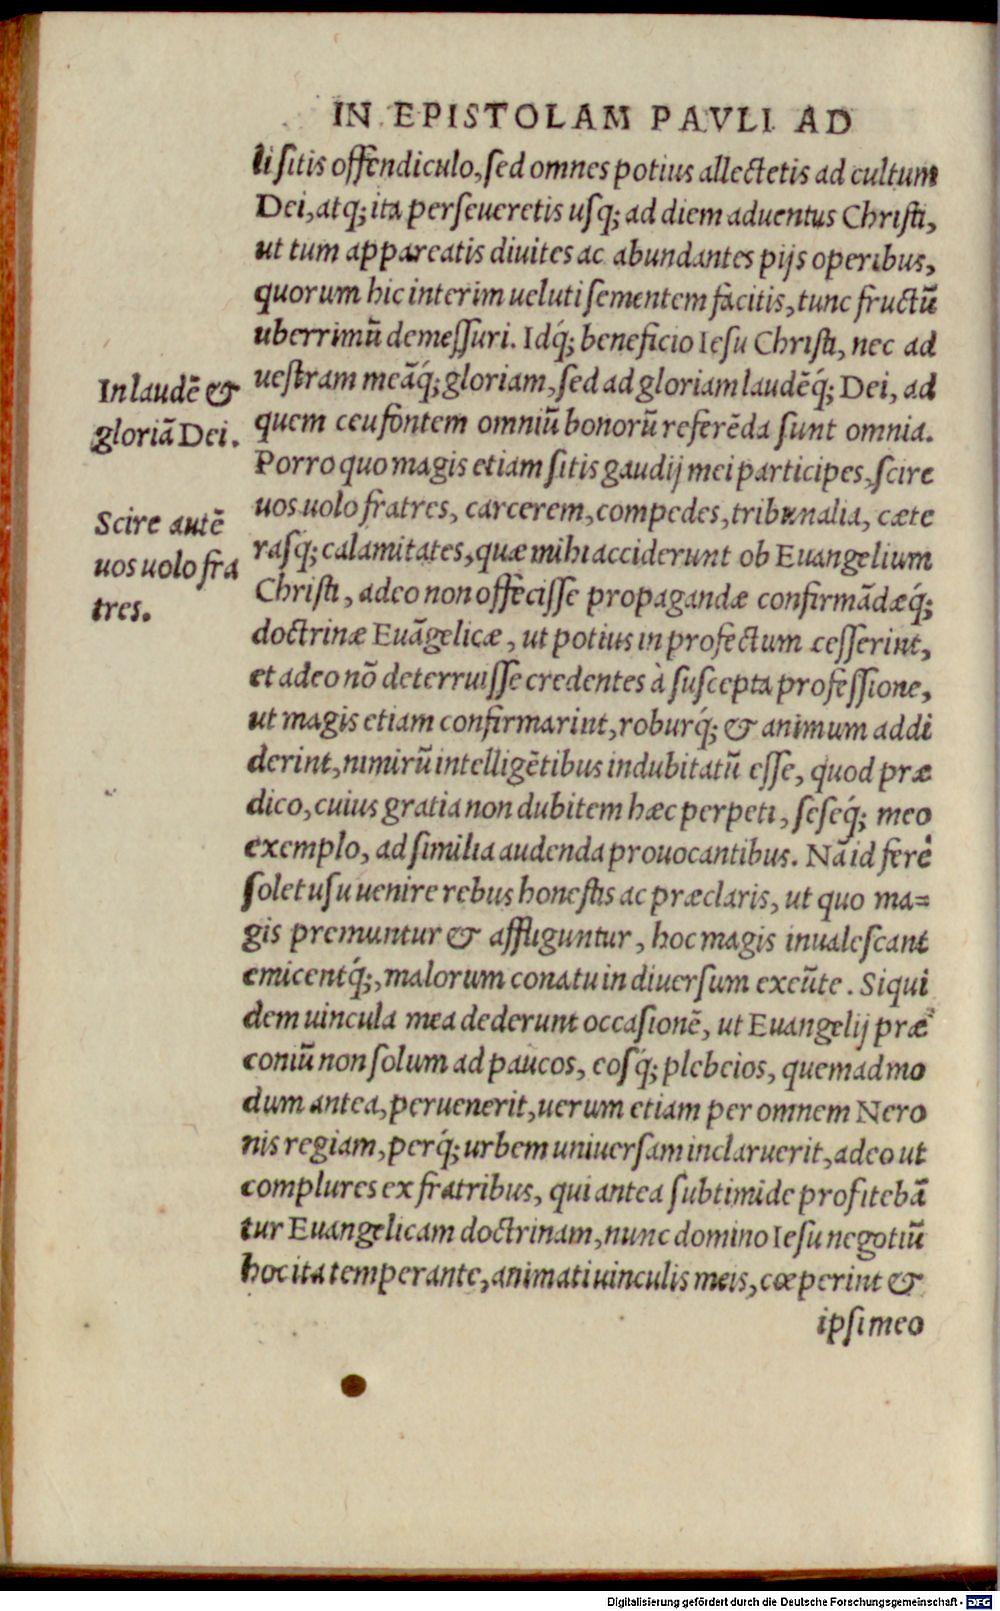 IN EPISTOLAM PAVLI AD
li ſitis offendiculo, ſed omnes potius allectetis ad cultum
Dei, atq; ita perſeueretis uſq; ad diem aduentus Chriſti,
ut tum appareatis diuites ac abundantes pijs operibus,
quorum hic interim ueluti ſementem facitis, tunc fructũ
uberrimũ demeſſuri. Idq́; beneficio Ieſu Chriſti, nec ad
In laudẽ &
ueſtram meãq́; gloriam, ſed ad gloriam laudẽq́; Dei, ad
gloriã Dei.
quem ceu fontem omniũ bonorũ referẽda ſunt omnia.
Porro quo magis etiam ſitis gaudij mei participes, ſcire
Scire autẽ
uos uolo fratres, carcerem, compedes, tribunalia, cæte
uos uolo fra
raſq́; calamitates, quæ mihi acciderunt ob Euangelium
tres.
Chriſti, adeo non offeciſſe propagandæ confirmãdæq́;
doctrinæ Euãgelicæ, ut potius in profectum ceſſerint,
et adeo nõ deterruiſſe credentes à ſuſcepta profeſſione,
ut magis etiam confirmarint, roburq́; & animum addi
derint, nimirũ intelligẽtibus indubitatũ eſſe, quod præ
dico, cuius gratia non dubitem hæc perpeti, ſeſeq́; meo
exemplo, ad ſimilia audenda prouocantibus. Nã id ferè
ſolet uſu uenire rebus honeſtis ac præclaris, ut quo ma=
gis premuntur & affliguntur, hoc magis inualeſcant
emicentq́;, malorum conatu in diuerſum exeũte. Siqui
dem uincula mea dederunt occaſionẽ, ut Euangelij præ
coniũ non ſolum ad paucos, eoſq́; plebeios, quemadmo
dum antea, peruenerit, uerum etiam per omnem Nero
nis regiam, perq́; urbem uniuerſam inclaruerit, adeo ut
complures ex fratribus, qui antea ſubtimide profitebã
tur Euangelicam doctrinam, nunc domino Ieſu negotiũ
hoc ita temperante, animati uinculis meis, cœperint &
ipſi meo
Digitalisierung gefördert durch die Deutsche Forschungsgemeinschaft - DFG